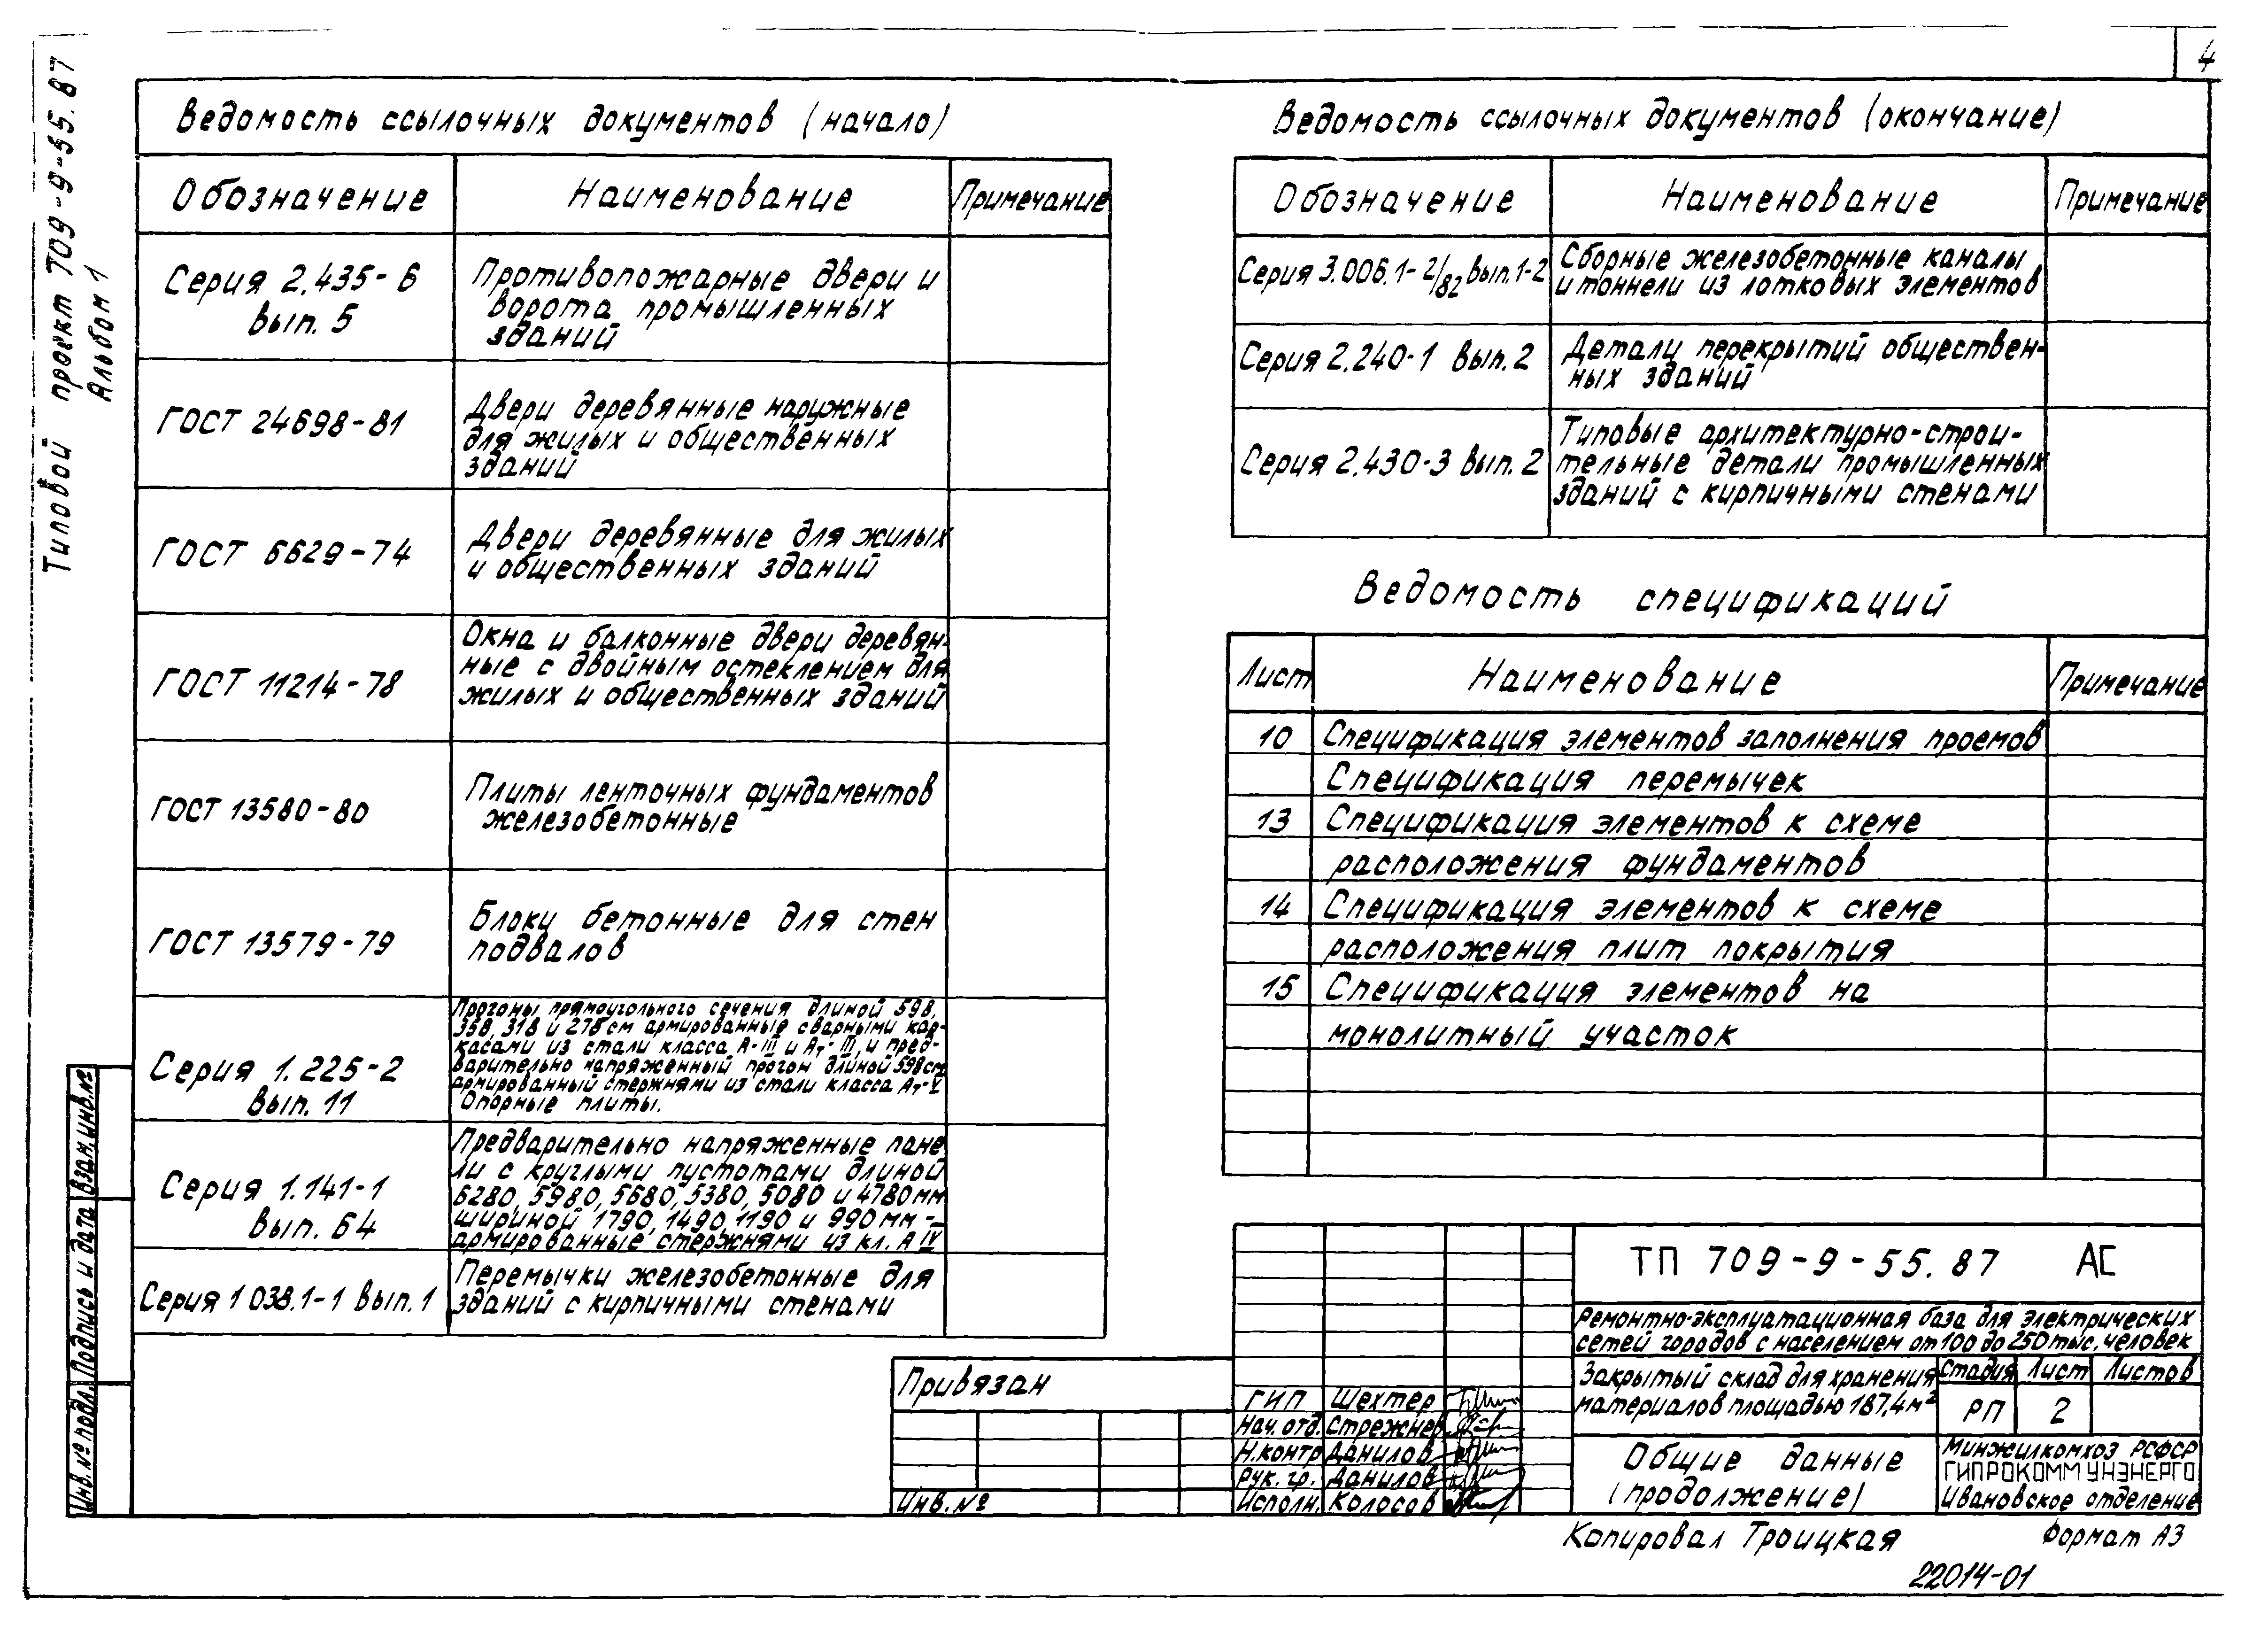 4
Типовой проект 709-9-55.87
Альбом 1
Ведомость ссылочных документов (начало)
Обозначение Наименование Примечание
Серия 2.435-6
Вып. 5
Противопожарные двери и
ворота промышленных
зданий
ГОСТ 24698-81
Двери деревянные наружные
для жилых и общественных
зданий
ГОСТ 6629-74
Двери деревянные для жилых
и общественных зданий
ГОСТ 11214-78
Окна и балконные двери деревян-
ные с двойным остеклением для
жилых и общественных зданий
ГОСТ 13580-80
Плиты ленточных фундаментов
железобетонные
ГОСТ 13579-79
Блоки бетонные для стен
подвалов
Серия 1.225-2
Вып. 11
Прогоны прямоугольного сечения длиной 598,
358, 318 и 278 см армированные сварными кар-
касами из стали класса А-III и Ат-III, и пред-
варительно напряженный прогон длиной 598 см
армированный стержнями из стали класса Ат-V
Опорные плиты.
Серия 1.141-1
Вып. 64
Предварительно напряженные пане
ли с круглыми пустотами длиной
6280, 5980, 5680, 5380, 5080 и 4780 мм
шириной 1790, 1490, 1190 и 990 мм -
армированные стержнями из кл. А IV
Серия 1 038.1-1 Вып. 1
Перемычки железобетонные для
зданий с кирпичными стенами
Ведомость ссылочных документов (окончание)
Обозначение Наименование Примечание
Серия 3.006.1-2/82 Вып. 1-2
Сборные железобетонные каналы
и тоннели из лотковых элементов
Серия 2.240-1 Вып. 2
Детали перекрытий обществен-
ных зданий
Серия 2.430-3 Вып. 2
Типовые архитектурно-строи-
тельные детали промышленных
зданий с кирпичными стенами
Ведомость спецификаций
Лист Наименование Примечание
10 Спецификация элементов заполнения проемов
Спецификация перемычек
13 Спецификация элементов к схеме
расположения фундаментов
14 Спецификация элементов к схеме
расположения плит покрытия
15 Спецификация элементов на
монолитный участок
Взам. инв. №
Подпись и дата
Инв. № подл.
Привязан
Инв. №
ГИП Шехтер
Нач. отд. Стрежнев
Н.контр Данилов
Рук. гр. Данилов
Исполн. Колосов
ТП 709-9-55.87 АС
Ремонтно-эксплуатационная база для электрических
сетей городов с населением от 100 до 250 тыс. человек
Закрытый склад для хранения
материалов площадью 187,4 м²
Стадия Лист Листов
РП 2
Общие данные
(продолжение)
Минжилкомхоз РСФСР
ГИПРОКОММУНЭНЕРГО
Ивановское отделение
Копировал Троицкая Формат А3
22014-01